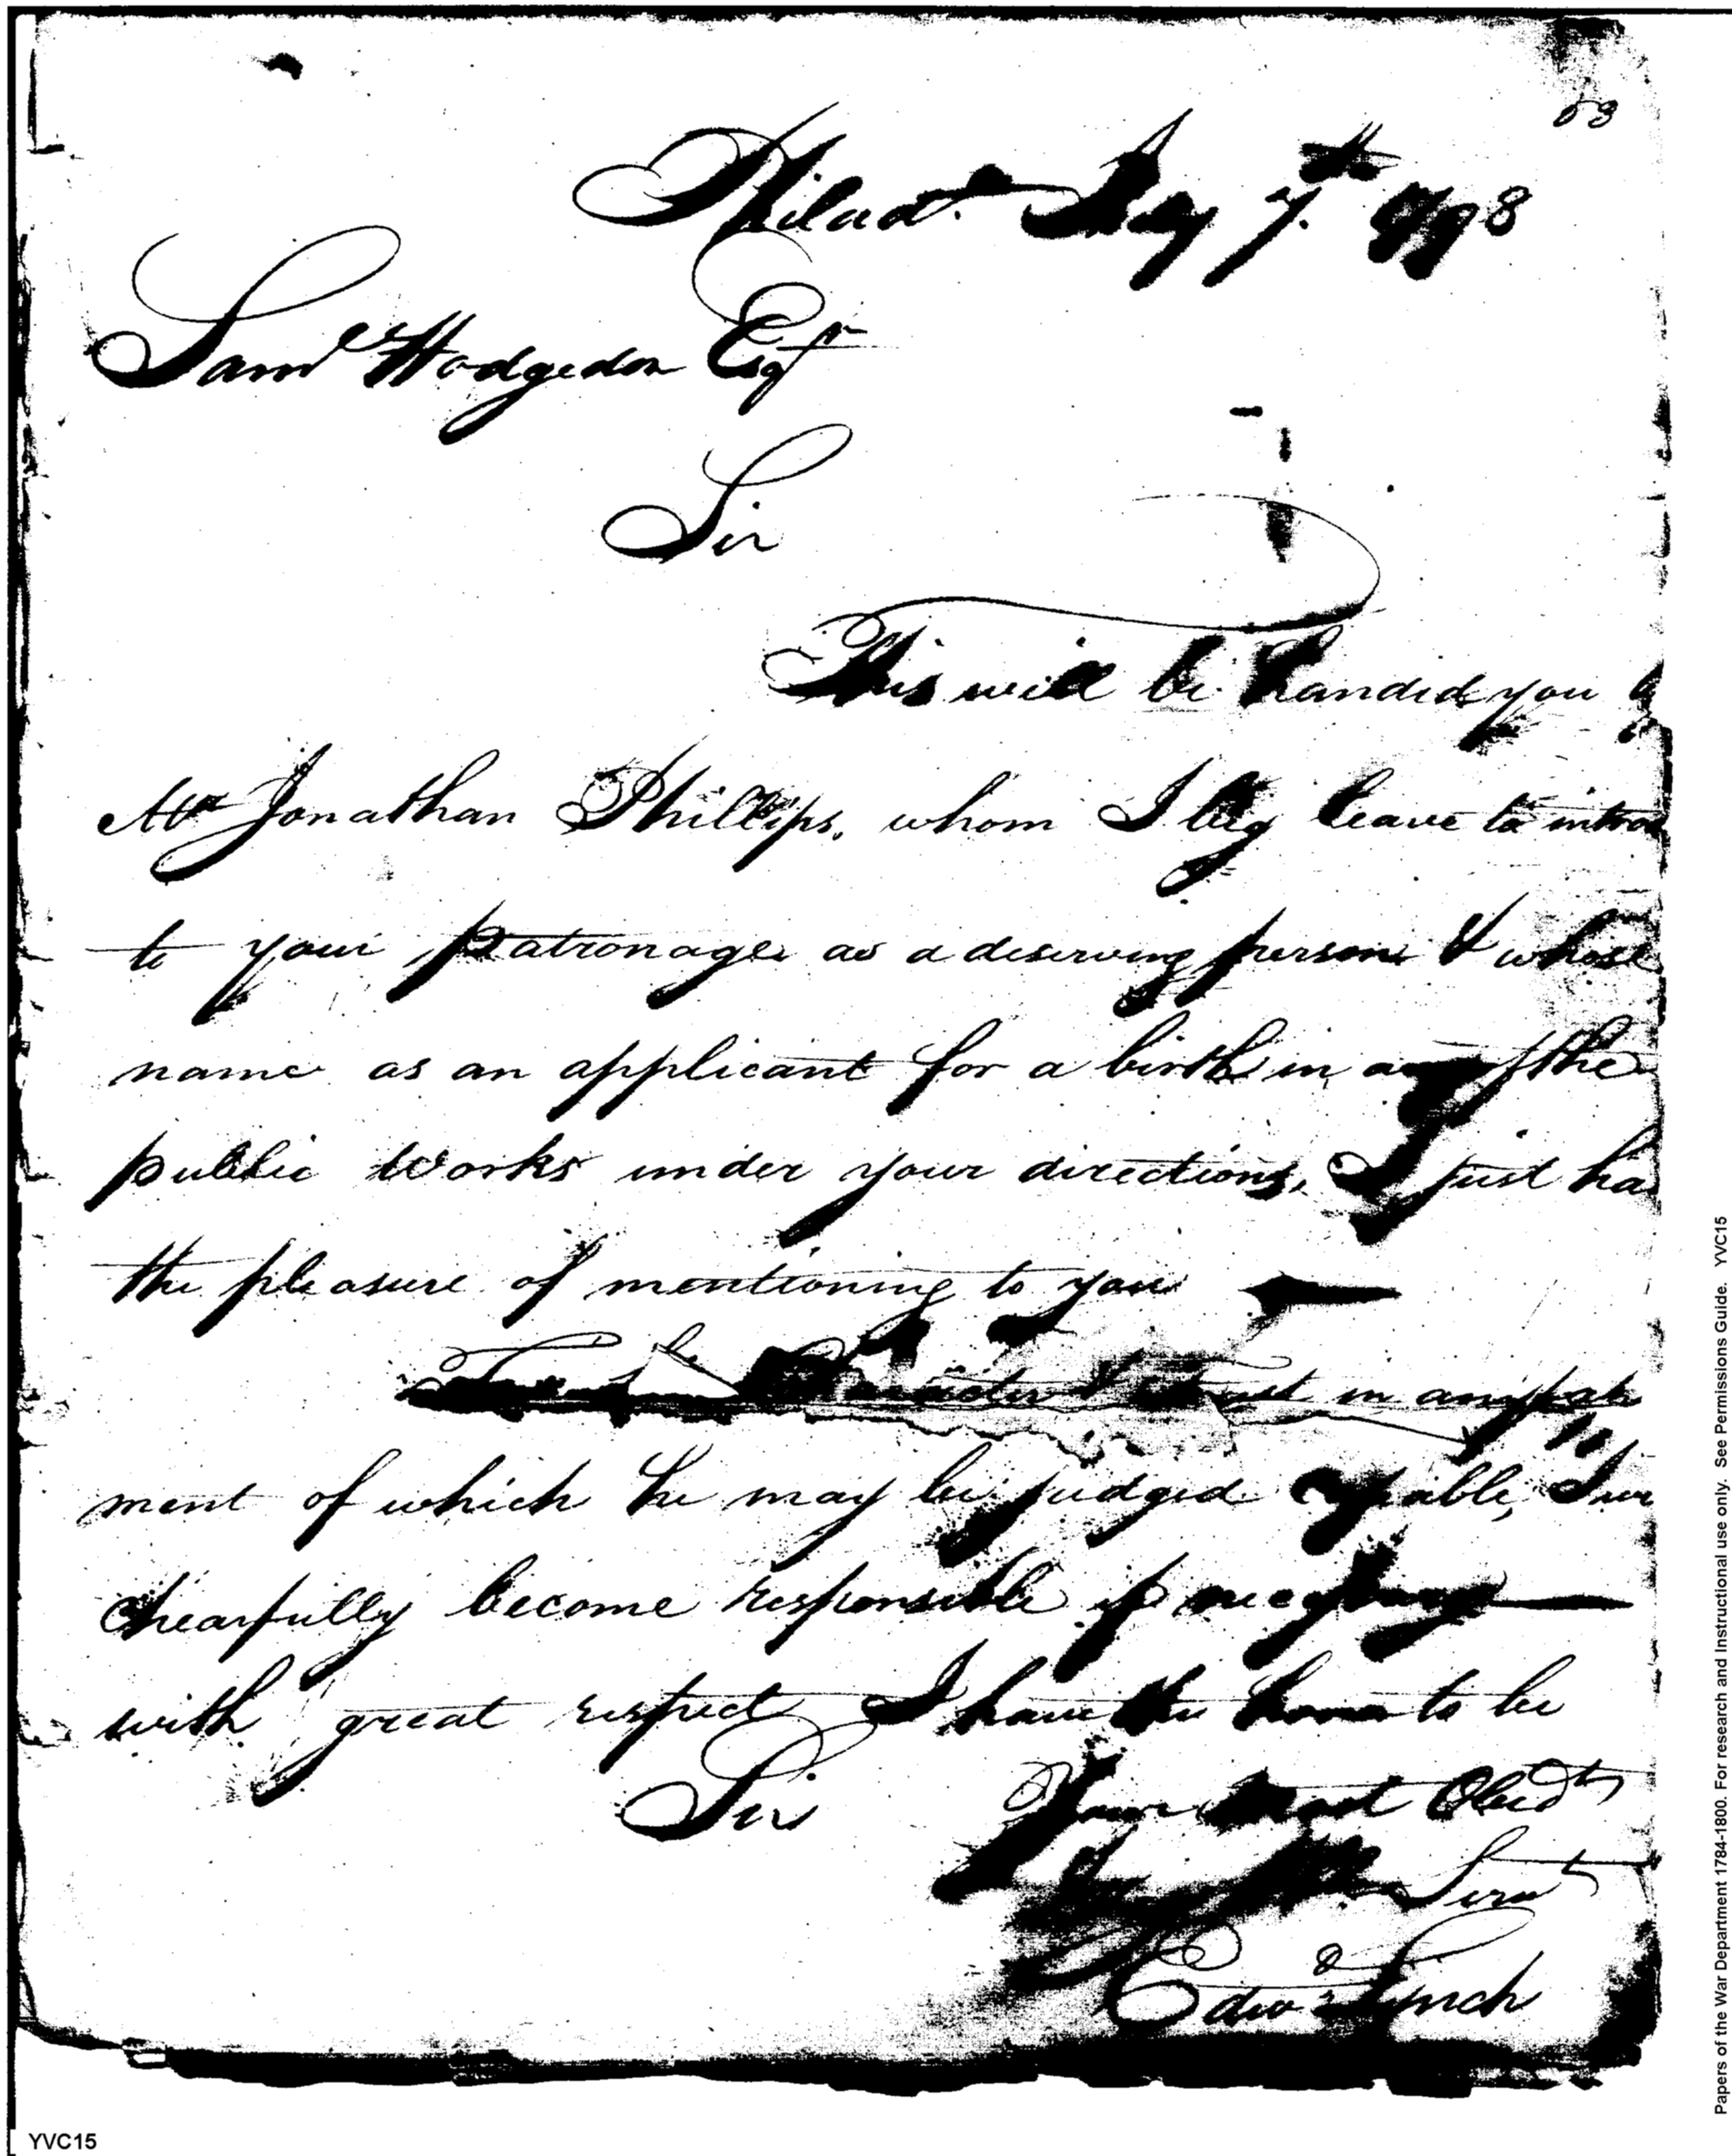 63
Philada. May 7th 1798
Saml Hodgedon Esqr
Sir
This will be handed you by
Mr Jonathan Phillips, whom I beg leave to introd
to your patronage as a deserving person & whose
name as an applicant for a birth in any of the
public Works under your directions, I just ha
the pleasure of mentioning to you
in any
ment of which he may be judged capable, I
chearfully become responsible if necessary
with great respect I have the honor to be
Sir Your Most Obedt
Servt
Edwd Lynch
YVC15
Papers of the War Department 1784-1800. For research and Instructional use only. See Permissions Guide. YVC15